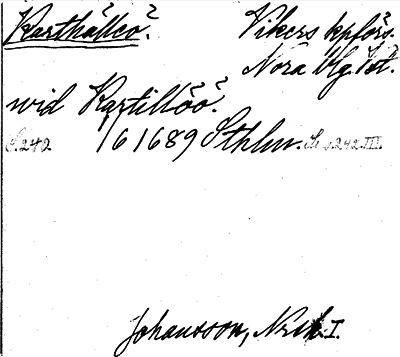 Karthälleö?. Vikers kpförs.
Nora blg. Vst.
wid Kartillöö?.
S. 242 1/6 1689 Sthlm. Sh s. 242 III.
Johansson, Nrik. I.